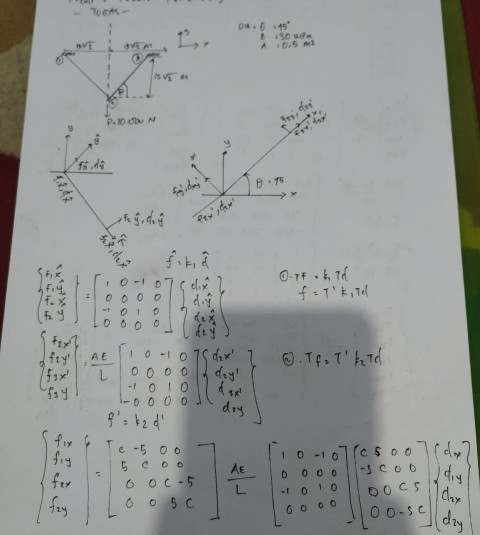 - TUGAS -
Dik : θ : 45°
E : 30 MPa
A : 0,5 m²
15√2
15√2 M
y
x
①
15√2 M
P=10.000 N
y
ŷ
f₂ŷ, d₂ŷ
y
x
θ = 45
f₂x', d₂x'
f̂ = k₁ d̂
{f₁x̂ f₁ŷ f₂x̂ f₂ŷ} = [1 0 -1 0
0 0 0 0
-1 0 1 0
0 0 0 0] {d₁x̂ d₁ŷ d₂x̂ d₂ŷ}
①. Tf = k₁Td
f = T' k₁Td
{f₂x' f₂y' f₃x' f₃y} = AE/L [1 0 -1 0
0 0 0 0
-1 0 1 0
0 0 0 0] {d₂x' d₂y' d₃x' d₂y}
②. Tf = T' k₂Td
f' = k₂ d'
{f₁x f₁y f₂x f₂y} = [c -s 0 0
s c 0 0
0 0 c -s
0 0 s c] AE/L [1 0 -1 0
0 0 0 0
-1 0 1 0
0 0 0 0] [c s 0 0
-s c 0 0
0 0 c s
0 0 -s c] {d₁x d₁y d₂x d₂y}